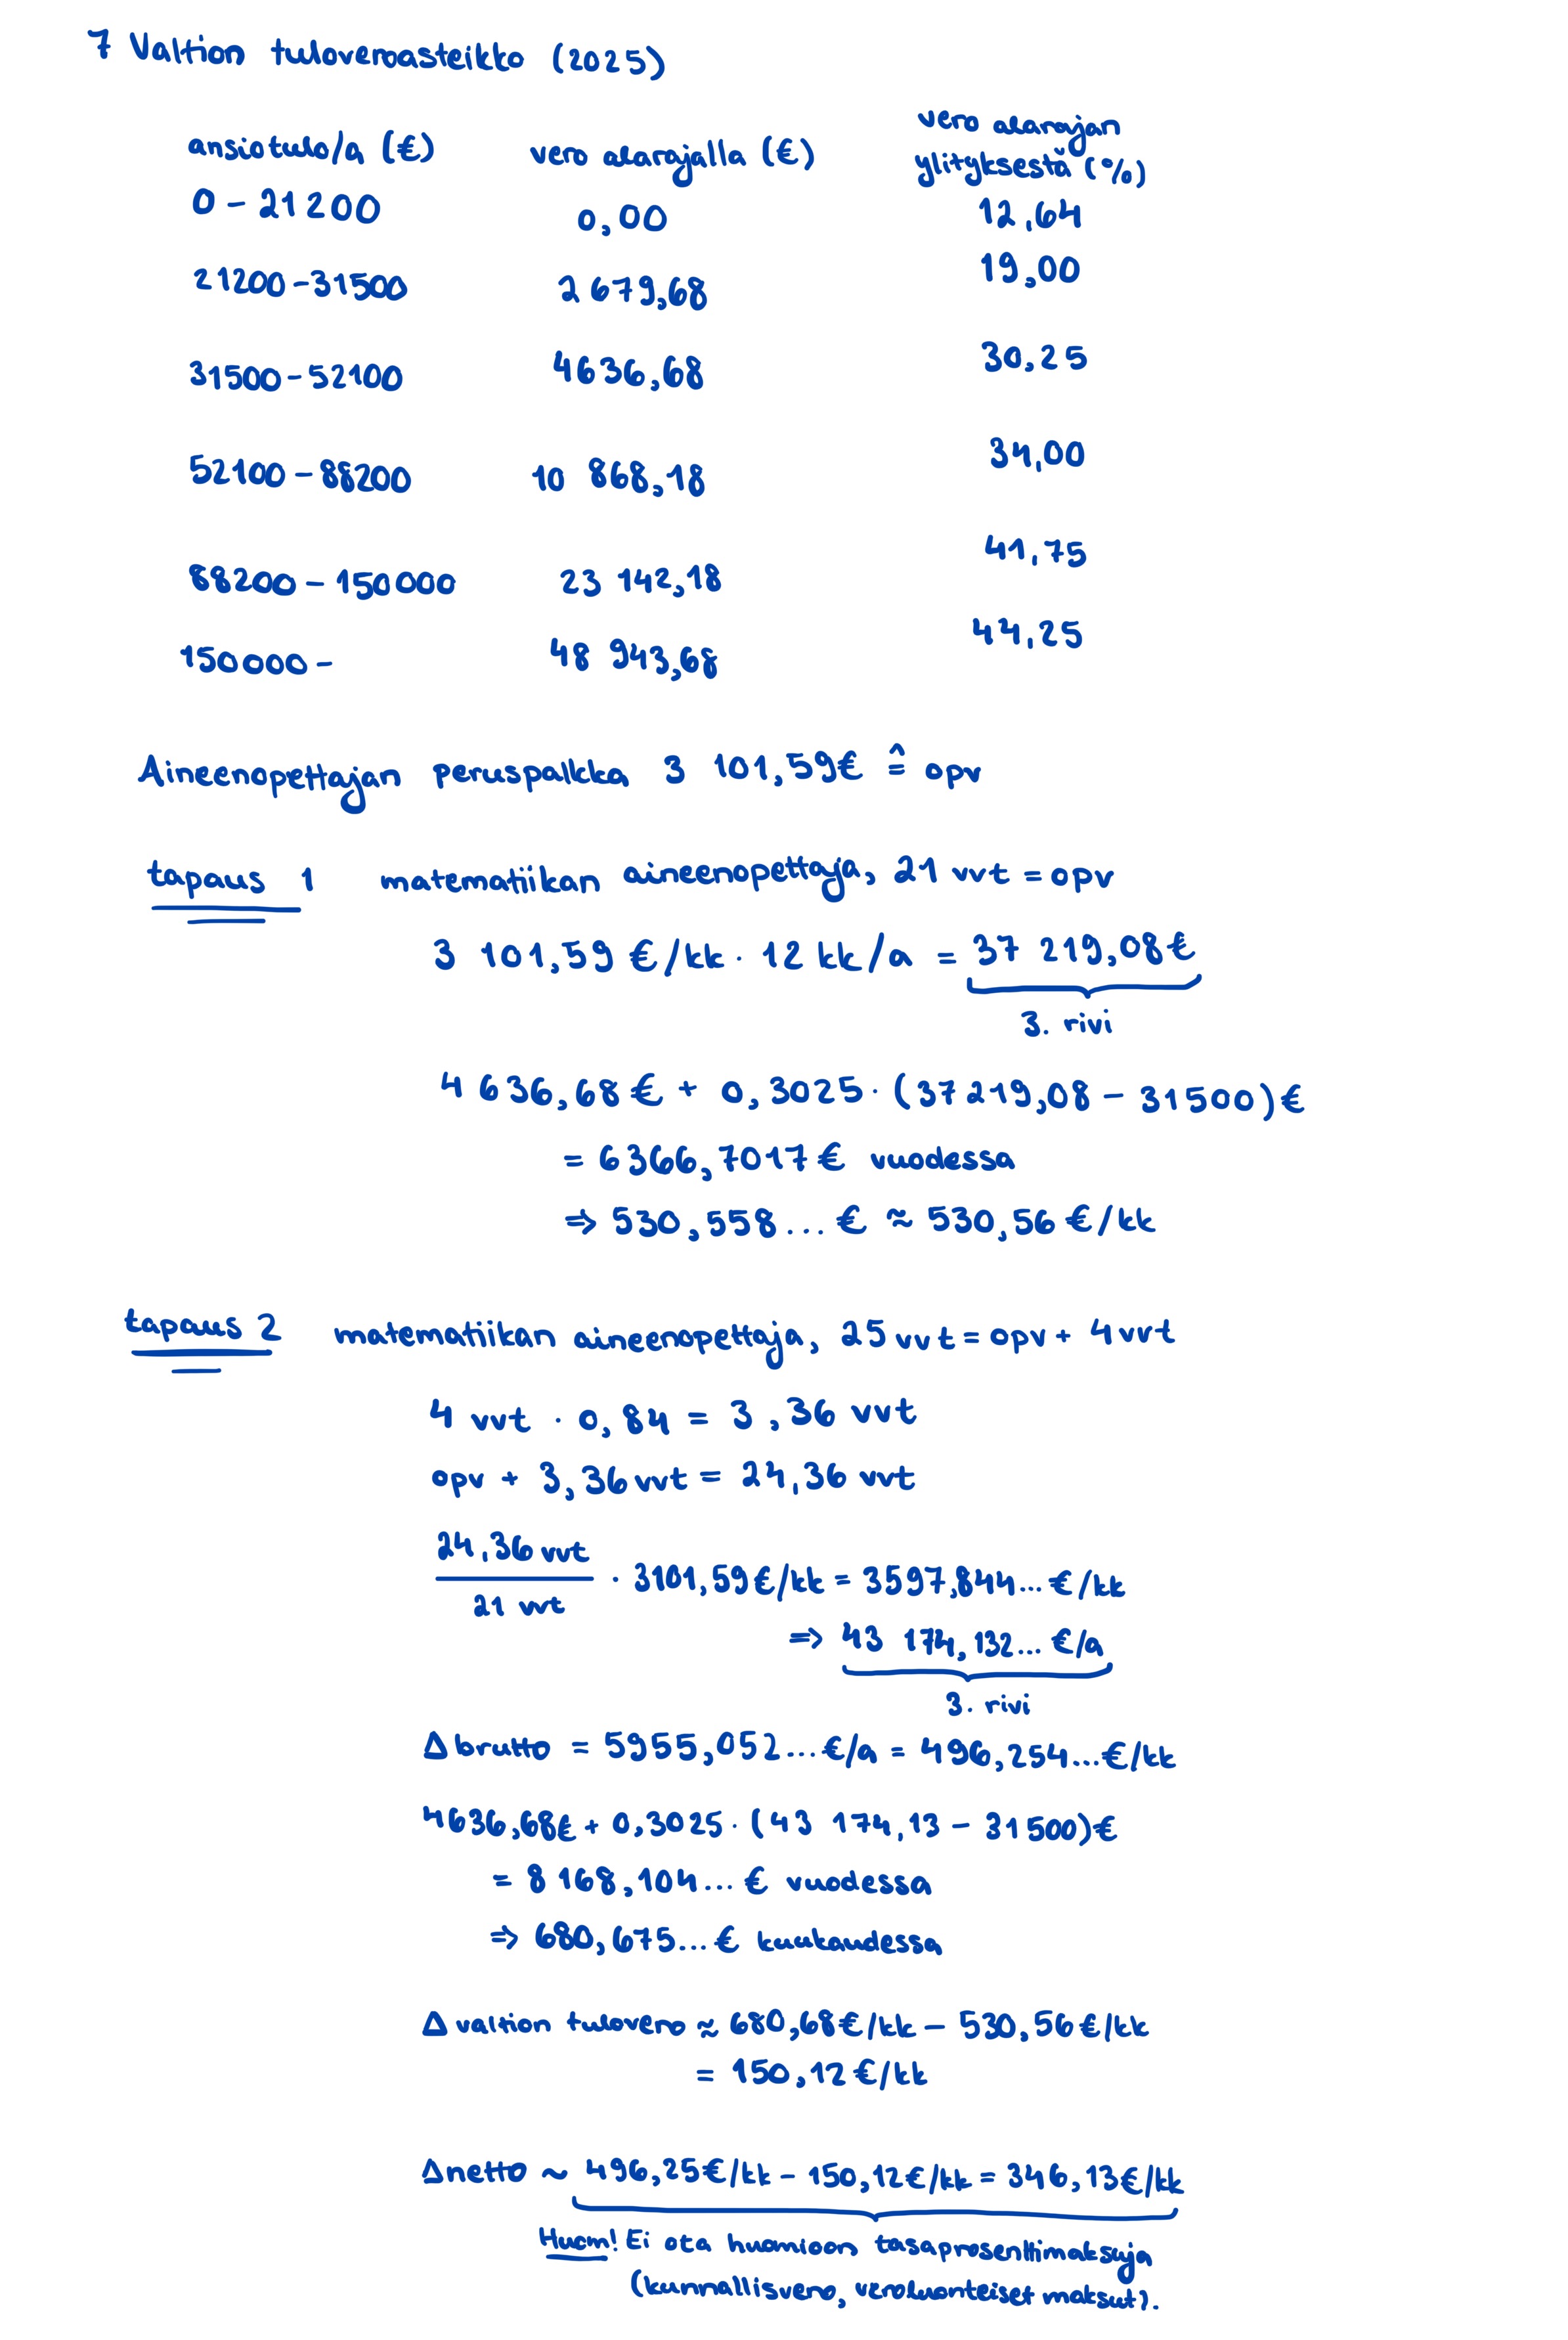 7 Valtion tuloveroasteikko (2025)
ansiotulo/a (€) vero alarajalla (€) vero alarajan ylityksestä (%)
0 – 21200 0,00 12,64
21200 – 31500 2 679,68 19,00
31500 – 52100 4636,68 30,25
52100 – 88200 10 868,18 34,00
88200 – 150000 23 142,18 41,75
150000 – 48 943,68 44,25
Aineenopettajan peruspalkka 3 101,59€ ≙ opv
tapaus 1 matematiikan aineenopettaja, 21 vvt = opv
3 101,59 €/kk · 12 kk/a = 37 219,08€
3. rivi
4 636,68€ + 0,3025 · (37219,08 – 31500)€
= 6366,7017€ vuodessa
⇒ 530,558...€ ≈ 530,56 €/kk
tapaus 2 matematiikan aineenopettaja, 25 vvt = opv + 4 vvt
4 vvt · 0,84 = 3,36 vvt
opv + 3,36 vvt = 24,36 vvt
24,36 vvt
21 vvt · 3101,59€/kk = 3597,844...€/kk
⇒ 43 174,132...€/a
3. rivi
Δ brutto = 5955,052...€/a = 496,254...€/kk
4636,68€ + 0,3025 · (43 174,13 – 31500)€
= 8 168,104...€ vuodessa
⇒ 680,675...€ kuukaudessa
Δ valtion tulovero ≈ 680,68€/kk – 530,56€/kk
= 150,12€/kk
Δnetto ~ 496,25€/kk – 150,12€/kk = 346,13€/kk
Huom! Ei ota huomioon tasaprosenttimaksuja
(kunnallisvero, veroluonteiset maksut).